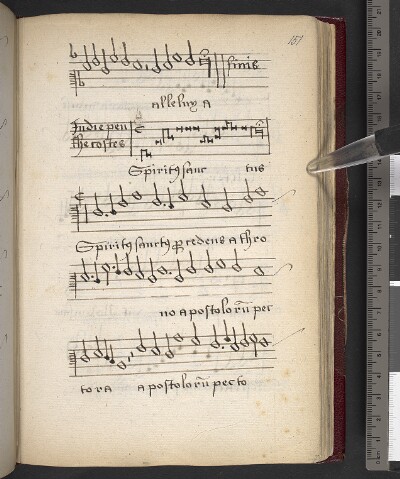 157
finis
alleluya
In die pen
the costes
Spiritus sanc tus
Spiritus sanctus p redens a thro
no apostolorũ pec
tora apostolorũ pecto